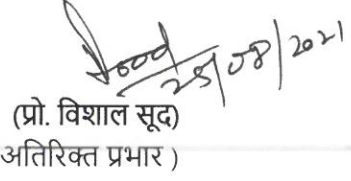 Sood
25/08/2021
(प्रो. विशाल सूद)
अतिरिक्त प्रभार )